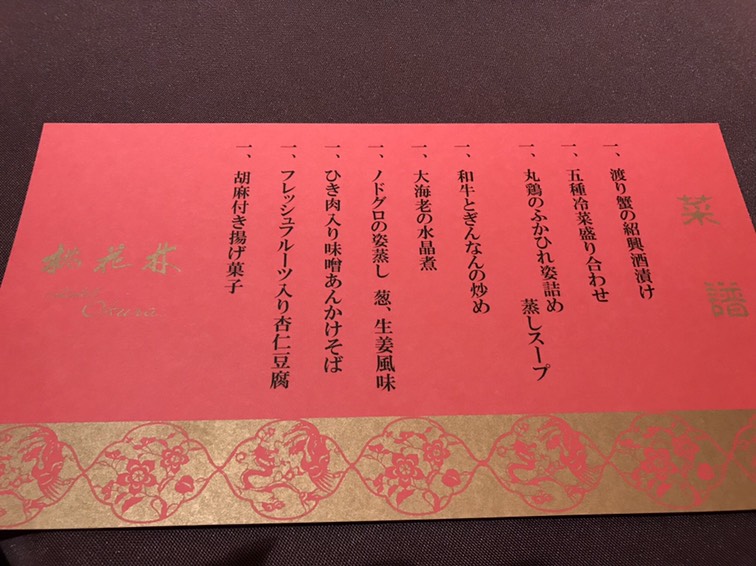 菜譜
一、渡り蟹の紹興酒漬け
一、五種冷菜盛り合わせ
一、丸鶏のふかひれ姿詰め 蒸しスープ
一、和牛とぎんなんの炒め
一、大海老の水晶煮
一、ノドグロの姿蒸し 葱、生姜風味
一、ひき肉入り味噌あんかけそば
一、フレッシュフルーツ入り杏仁豆腐
一、胡麻付き揚げ菓子
桃花林
Okura